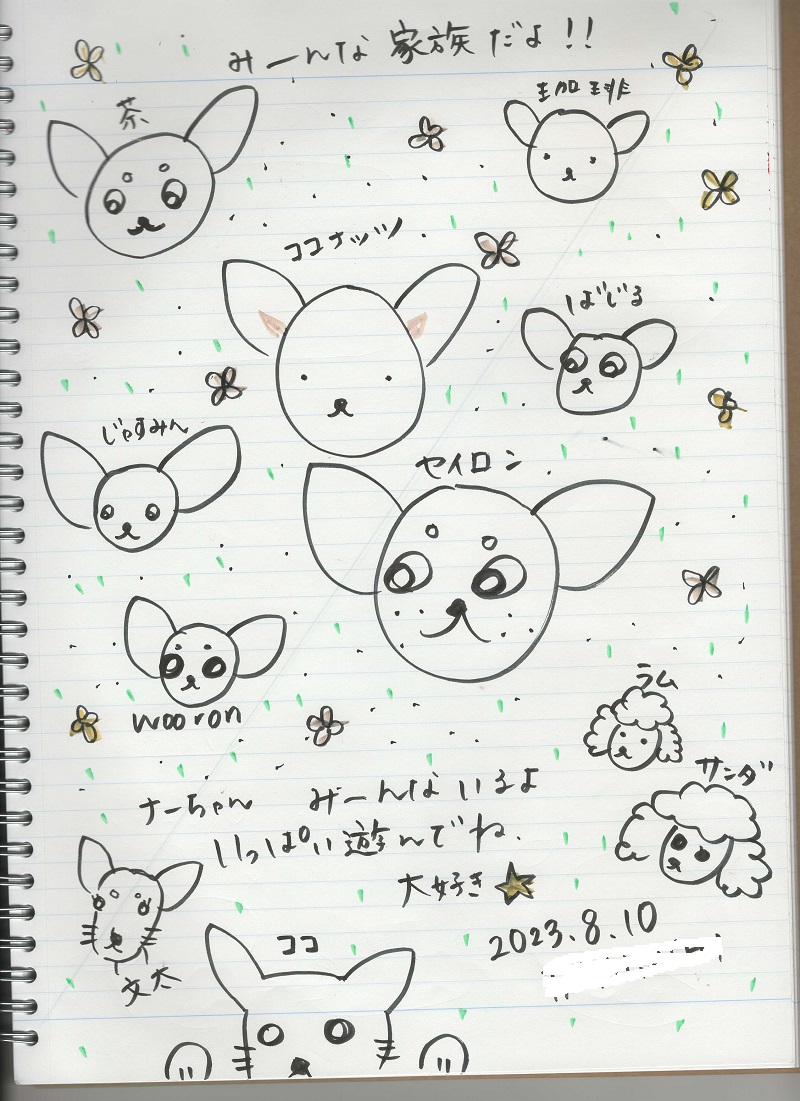 みーんな 家族 だよ!!
茶
珈琲
ココナッツ
ばじる
じゃすみん
セイロン
wooron
ラム
サンダ
ナーちゃん みーんないるよ
いっぱい遊んでね.
大好き
2023.8.10
文太
ココ